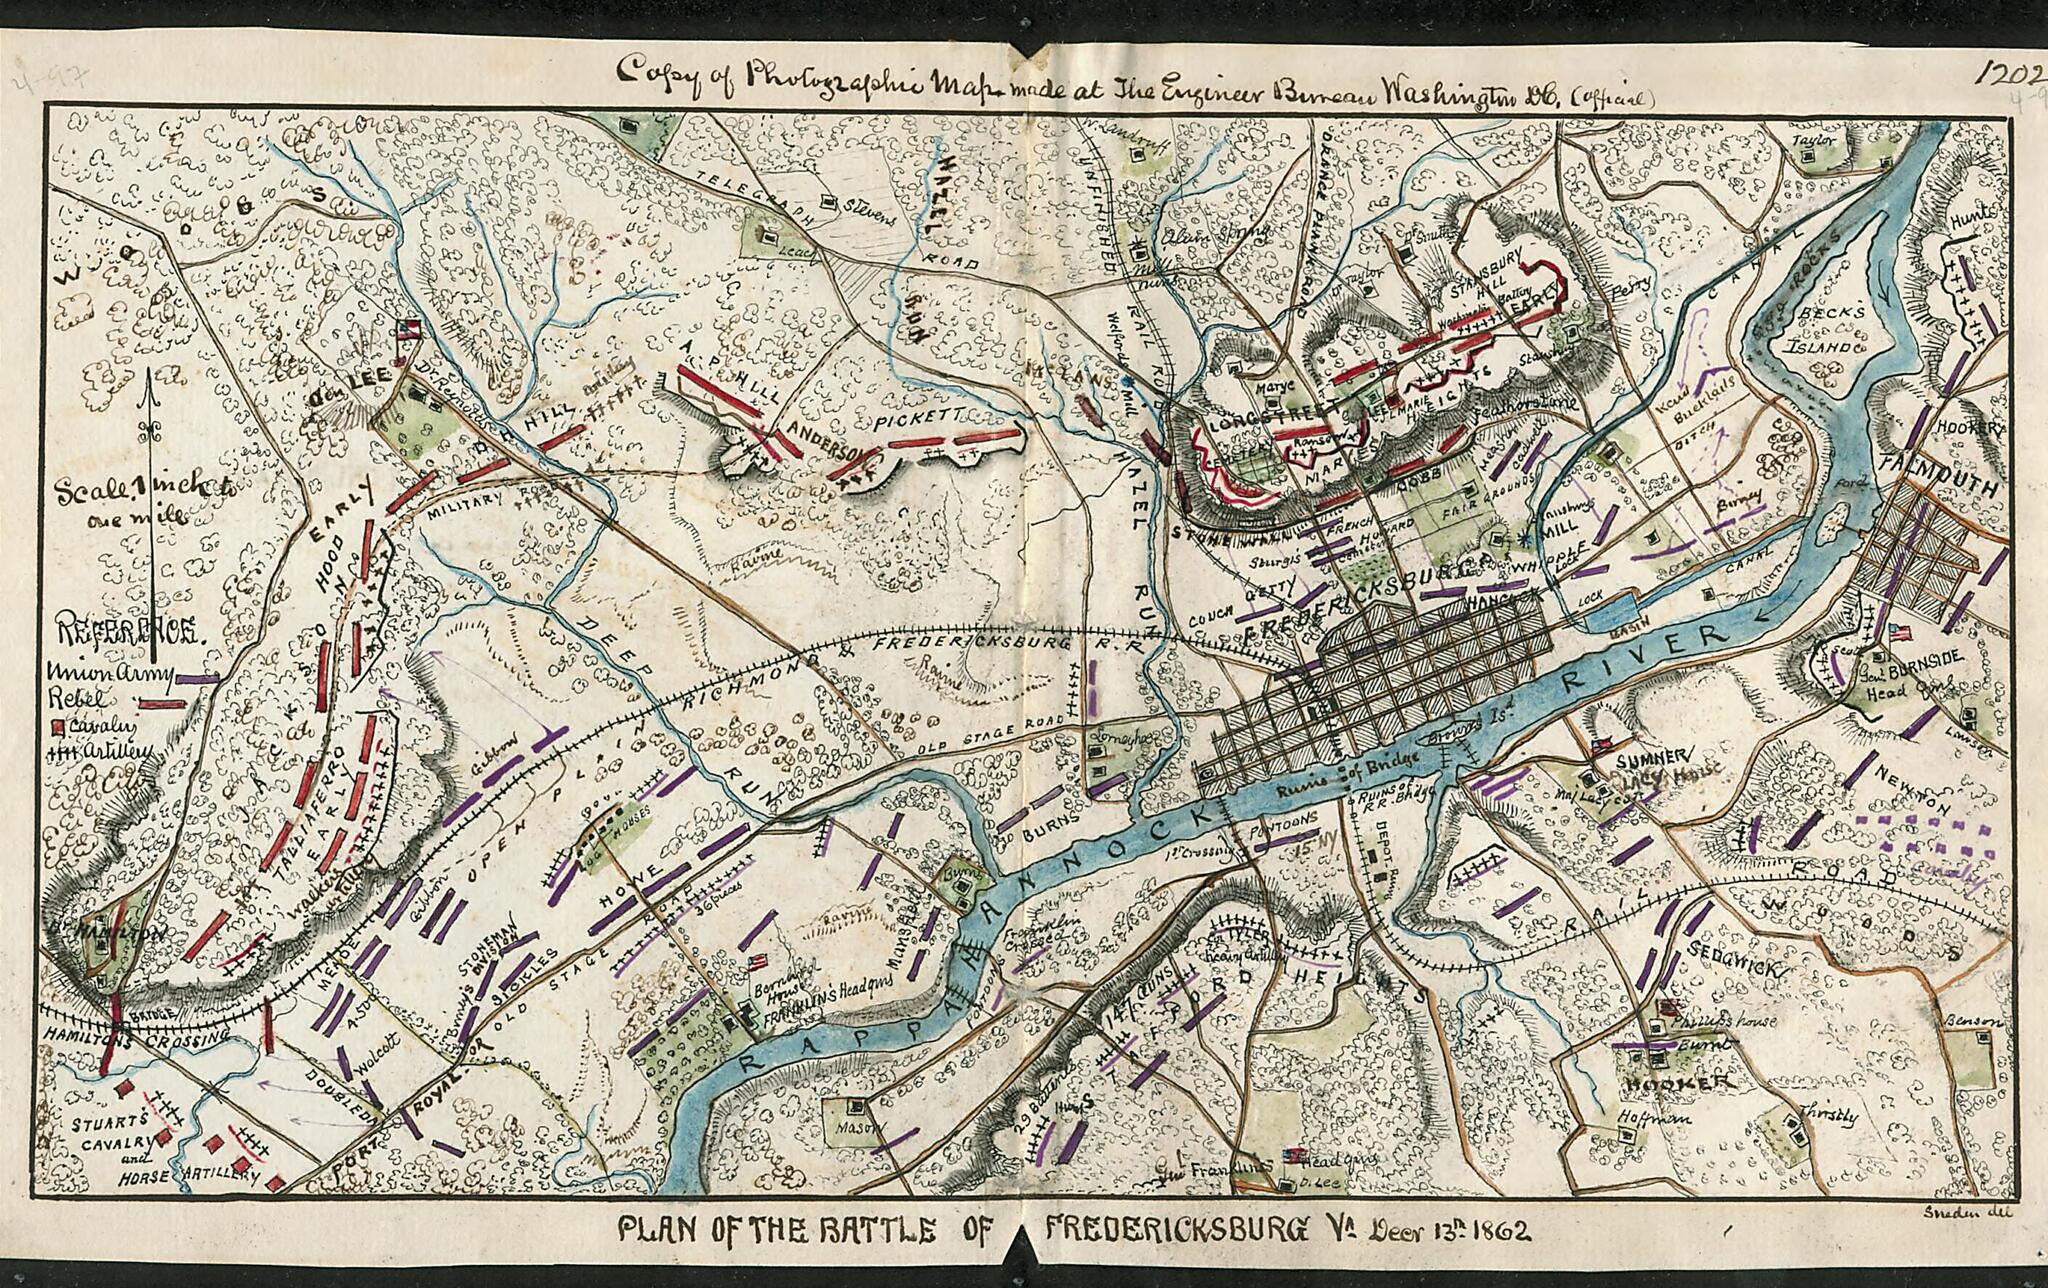 4-97
1202
Copy of Photographic Map made at The Engineer Bureau Washington DC, (official)
WOODS
TELEGRAPH
ROAD
Stevens
Leach
HAZEL
RUN
UNFINISHED
RAIL
ROAD
W. Landruff
Alum Spring
Mill
ORANGE PLANK ROAD
Taylor
Smith
STANSBURY
HILL
Battery
ERLY
Perry
CANAL
Taylor
ROCKS
BECK'S
ISLAND
Hunt
HOOKER
FALMOUTH
Ford
Gen
LEE
A P HILL
ANDERSON
PICKETT
McLAWS
Mill
Marye
LONGSTREET
Ransom
COBB
HILL
EARLY
HOOD
MILITARY
Scale, 1 inch to
one mile
REFERENCE.
Union Army
Rebel
Cavalry
Artillery
Ravine
HAZEL
RUN
STONE WALL
FRENCH
Sturgis
GETTY
COUCH
FAIR
GROUNDS
MILL
WHIPPLE
Birney
DITCH
LOCK
LOCK
BASIN
CANAL
HANCOCK
FREDERICKSBURG
DEEP
RUN
RICHMOND & FREDERICKSBURG R.R
Ravine
OLD STAGE ROAD
JACKSON
TALIAFERRO
EARLY
Gibbon
OPEN PLAIN
HOUSES
BURNS
RAPPAHANNOCK RIVER
Browns Isd
Ruins of Bridge
Ruins of
R.R. Bridge
PONTOONS
15 NY
1st Crossing
DEPOT
Gen BURNSIDE
Head Qrs
Lawson
SUMNER
Lacy House
Maj Lacy
NEWTON
Cavalry
RAIL ROAD
WOODS
SEDGWICK
Phillips house
Burnt
HOOKER
Hoffman
Thirstly
Benson
HAMILTON
BRIDGE
HAMILTONS CROSSING
MEADE
Gibbon
STONEMAN
DIVISION
Birney's
SICKLES
HOWE
36 pieces
OLD STAGE ROAD
OR
PORT ROYAL
DOUBLEDAY
Wolcott
STUART'S
CAVALRY
and
HORSE ARTILLERY
Bernard
House
FRANKLIN'S Head qrs
Mansfield
Burnt
Franklin
Crossed
Ravine
TYLER
heavy Artillery
147 GUNS
STAFFORD HEIGHTS
29 Batteries
Mason
Gen Franklins
Head qrs
D. Lee
PLAN OF THE BATTLE OF FREDERICKSBURG Va Decr 13th 1862
Sneden del